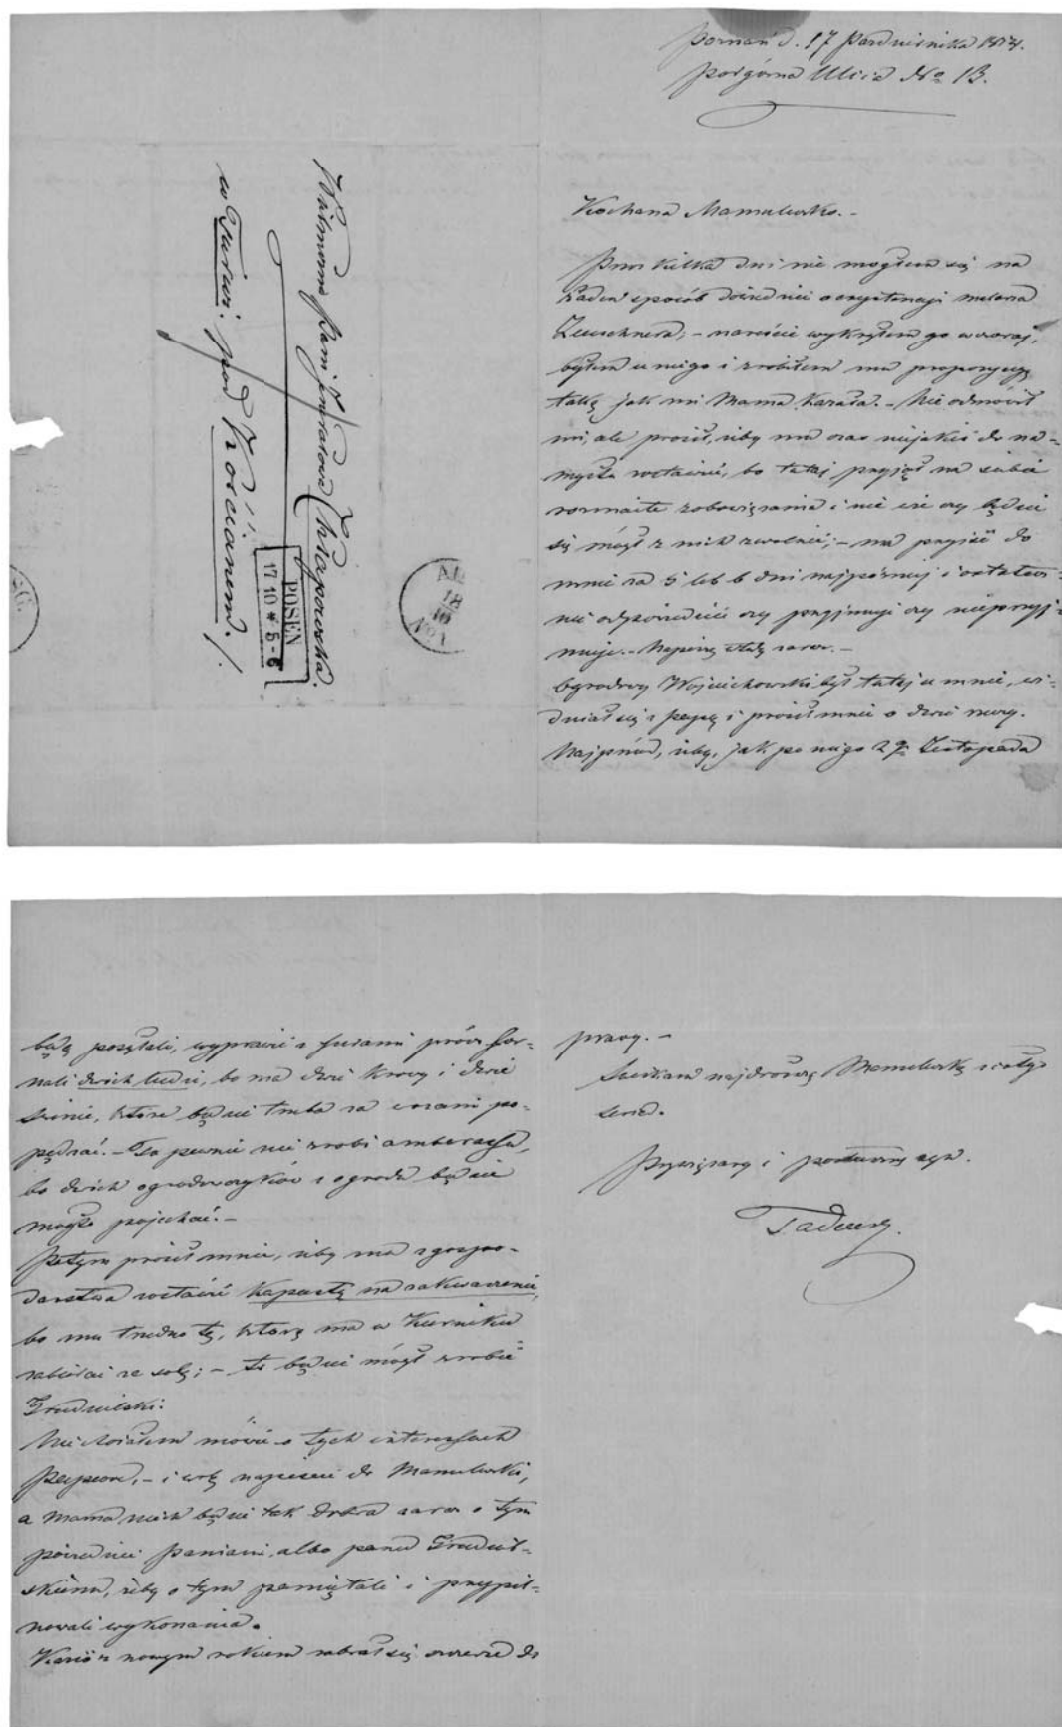 Poznań d. 17 Października
Podgórna Ulica No 13.
Kochana Mamuleńko. -
Przez kilka dni nie mogłem się na
żaden sposób dowiedzieć o egzystencyi malarza
Zeuschnera; - nareście wykryłem go wczoraj,
byłem u niego i zrobiłem mu propozycyę
taką jak mi Mama kazała. - Nie odmówił
mi, ale prosił, żeby mu czas niejakiś do na-
mysłu zostawić, bo tutaj przyjął na siebie
rozmaite zobowiązania i nie wie czy będzie
się mógł z nich zwolnić; - ma przyjść do
mnie za 5 lub 6 dni najpóźniej i ostatecz-
nie odpowiedzieć czy przyjmuje czy nieprzyj-
muje. - Napiszę wtedy zaraz. -
Ogrodowy Wojciechowski był tutaj u mnie, wi-
dział się z Papą i prosił mnie o dwie rzeczy.
Najprzód, żeby, jak po niego 2go Listopada
Wielmożna Pani Jenerałowa Chłapowska.
w Turwi: pod Kościanem.
POSEN
17 10 * 5-6
18
10
No 1
będą posyłali, wyprawić z furami prócz for-
nali dwóch ludzi, bo ma dwie krowy i dwie
świnie, które będzie trzeba za wozami po-
pędzać. - To pewnie nie zrobi ambarasu,
bo dwóch ogrodowczyków z ogrodu będzie
mogło pojechać. -
Potym prosił mnie, żeby mu z gospo-
darstwa zostawić kapustę na zakwaszenie,
bo mu trudno tę, którą ma w Kurniku
zabierać ze sobą; - to będzie mógł zrobić
Grudzielski:
Nie chciałem mówić o tych interessach
Papowi, - i wolę napisać do Mamuleńki,
a Mama niech będzie tak dobra zaraz o tym
powiedzieć Paniani, albo panu Grudziel-
skiemu, żeby o tym pamiętali i przypil-
nowali wykonania.
z nowym rokiem zabrał się szczerze do
pracy. -
Ściskam najdroższą Mamuleńkę z całego
serca.
Przywiązany i posłuszny syn.
Tadeusz.